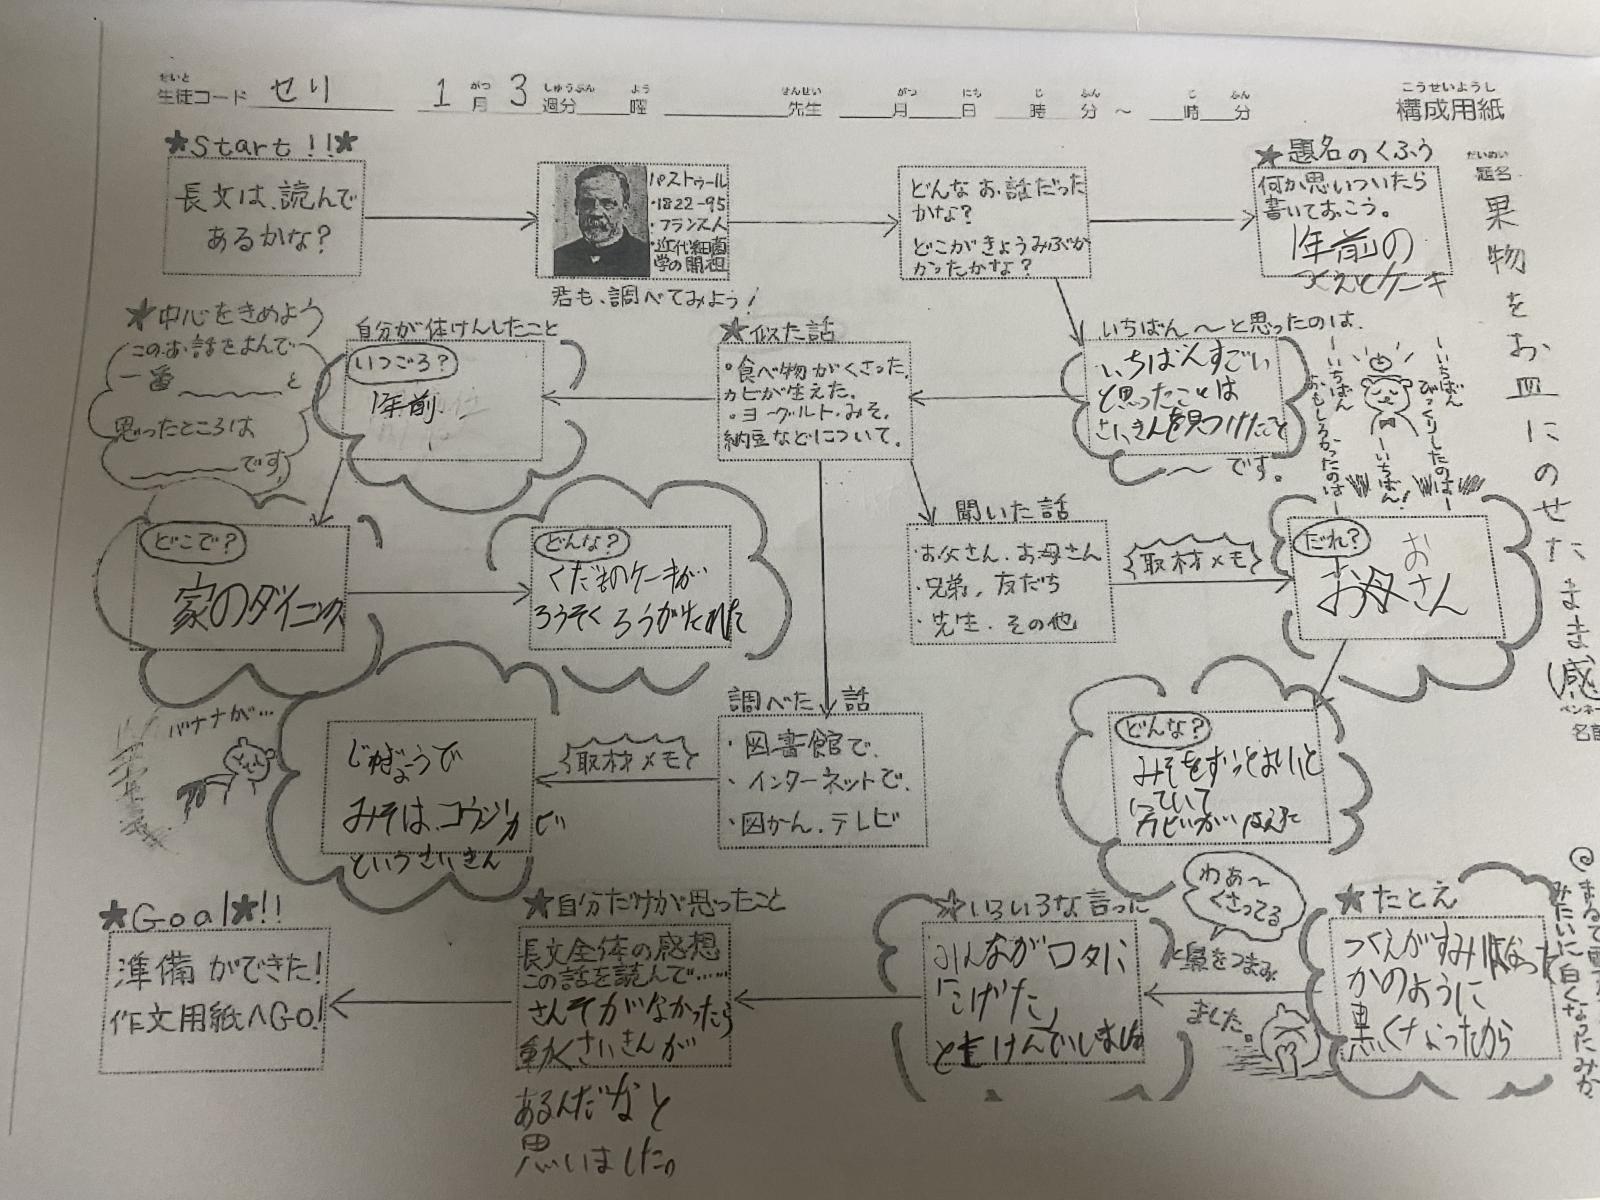 せいと
生徒コード せり 1 がつ 月 3 しゅうぶん 週分 よう 曜 せんせい 先生 がつ 月 にち 日 じ 時 ふん 分 ～ じ 時 ふん 分
こうせいようし
構成用紙
★Start!!★
長文は、読んで
あるかな?
パストゥール
・1822-95
・フランス人
・近代細菌
学の開祖
君も、調べてみよう!
どんなお話だった
かな?
どこがきょうみぶか
かったかな?
★題名のくふう
何か思いついたら
書いておこう。
1年前の
つくえとケーキ
だいめい
題名
果物をお皿にのせたまま(感
ペンネー
名前
★中心をきめよう
このお話をよんで
一番 と
思ったところは
です
自分が体けんしたこと
いつごろ?
1年前
★似た話
・食べ物がくさった。
カビが生えた。
・ヨーグルト・みそ、
納豆などについて。
いちばん～と思ったのは、
いちばんすごい
と思ったことは
さいきんを見つけたこと
～です。
ーいちばん
びっくりしたのはー
ーいちばん!
ーいちばん
おもしろかったのはー
どこで?
家のダイニング
どんな?
くだものケーキが
ろうそく ろうがたれた
聞いた話
・お父さん、お母さん
・兄弟、友だち
・先生、その他
取材メモ
だれ?
お
お母さん
バナナが…
じゅぎょうで
みそは、コウジカビ
というさいきん
取材メモ
調べた話
・図書館で、
・インターネットで、
・図かん、テレビ
どんな?
みそをずっとおいと
いていて
カビがはえた
★Goal★!!
準備ができた!
作文用紙へGo!
★自分だけが思ったこと
長文全体の感想
この話を読んで……
さんそがなかったら
動くさいきんが
あるんだなと
思いました。
★いろいろな言った
みんなが口々に
「こげた」
とさけんでいました
わあ～
くさってる
と鼻をつまみ
ました。
★たとえ
つくえがすみになった
かのように
黒くなったから
@まるで雪
みたいに白くなったみか